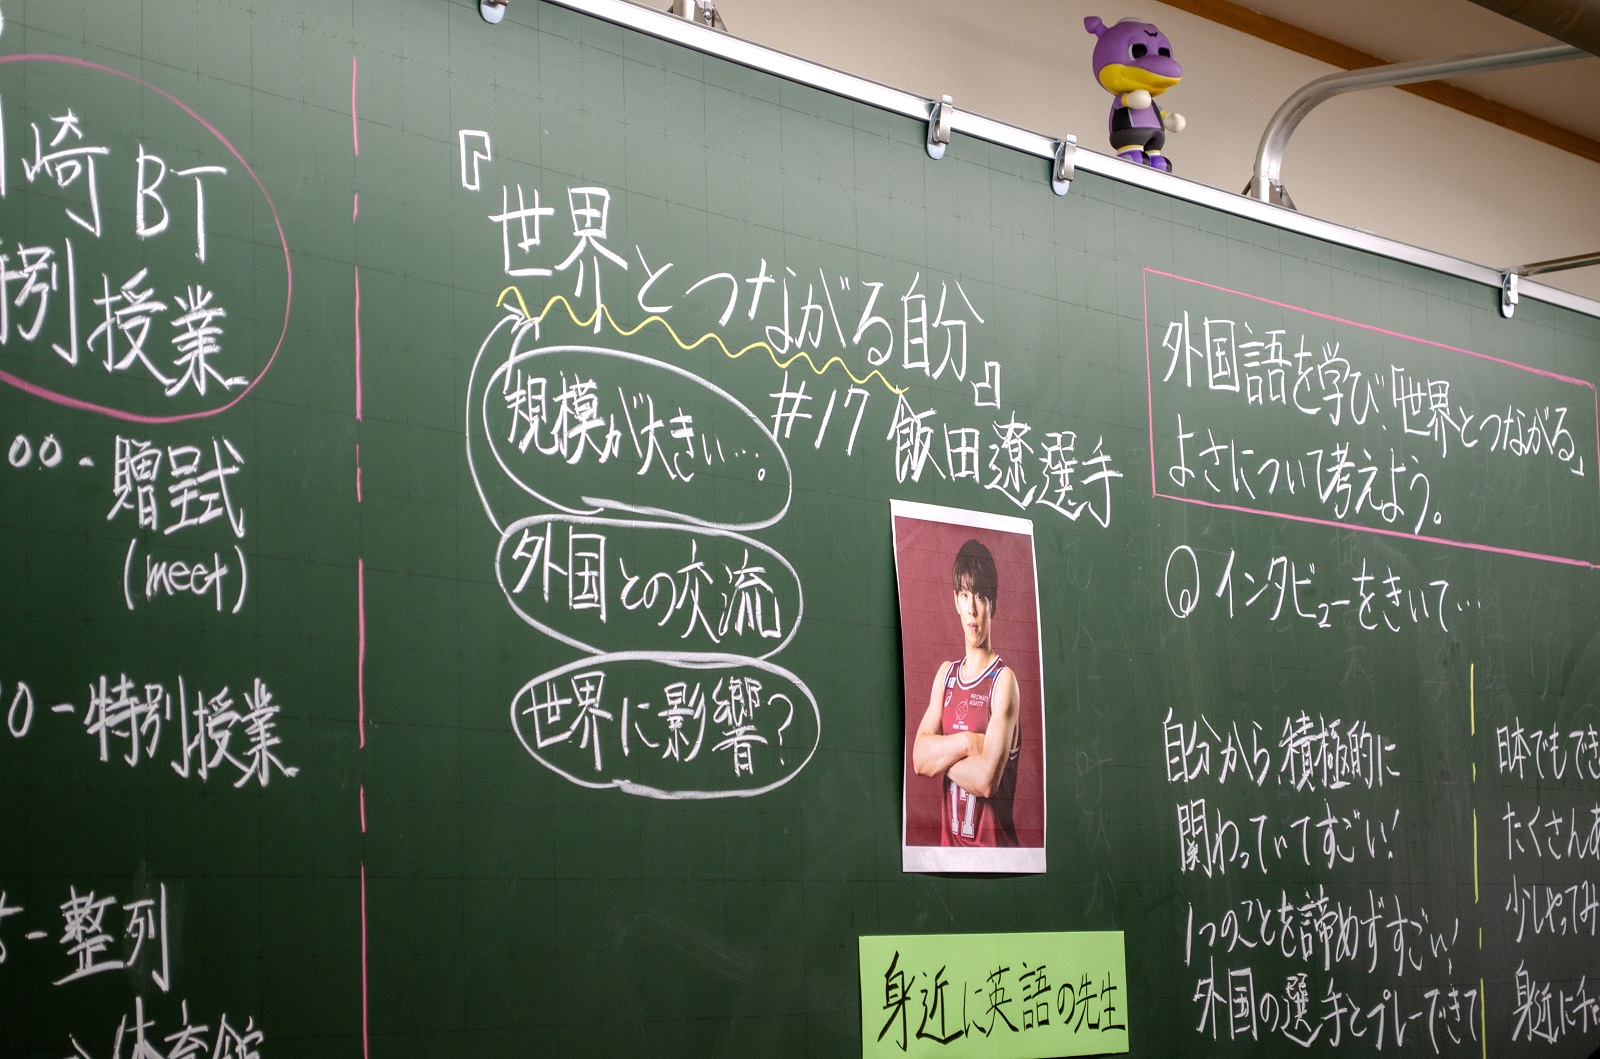 崎BT
特別授業
00-贈呈式
(meet)
0-特別授業
-整列
→体育館
『世界とつながる自分』
規模が大きい…。
外国との交流
世界に影響?
#17 飯田遼選手
RECRUIT
AGENT
17
身近に英語の先生
外国語を学び、「世界とつながる」
よさについて考えよう。
インタビューをきいて…
自分から積極的に
関わっていてすごい!
1つのことを諦めずすごい!
外国の選手とプレーできて
日本でもでき
たくさんあ
少しやってみ
身近に